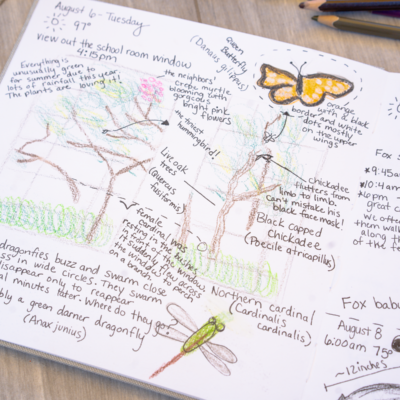 August 6 - Tuesday
97°
view out the school room window
4:15pm
Everything is
unusually green
for summer due to
lots of rainfall this year.
The plants are loving it!
the neighbors'
crepe myrtle
blooming with
gorgeous
bright pink
flowers
the tiniest
hummingbird!
Queen
Butterfly
(Danaus gilippus)
orange
with a black
border and white
dots mostly
on the upper
wings
Live oak
trees
(Quercus
fusiformis)
chickadee
flutters from
limb to limb.
Can't mistake his
black face mask!
Black capped
Chickadee
(Poecile atricapillus)
female
cardinal was
resting in the bushes
in front of the window
suddenly flew across
the window to perch
on a branch
Northern cardinal
(Cardinalis
cardinalis)
dragonflies buzz and swarm close
in wide circles. They swarm
disappear only to reappear
minutes later. Where do they go?
a green darner dragonfly
(Anax junius)
Fox
9:45a
10:4am
great
we
them
along
of the
Fox bab
August 8
6:00am 75°
~12 inches